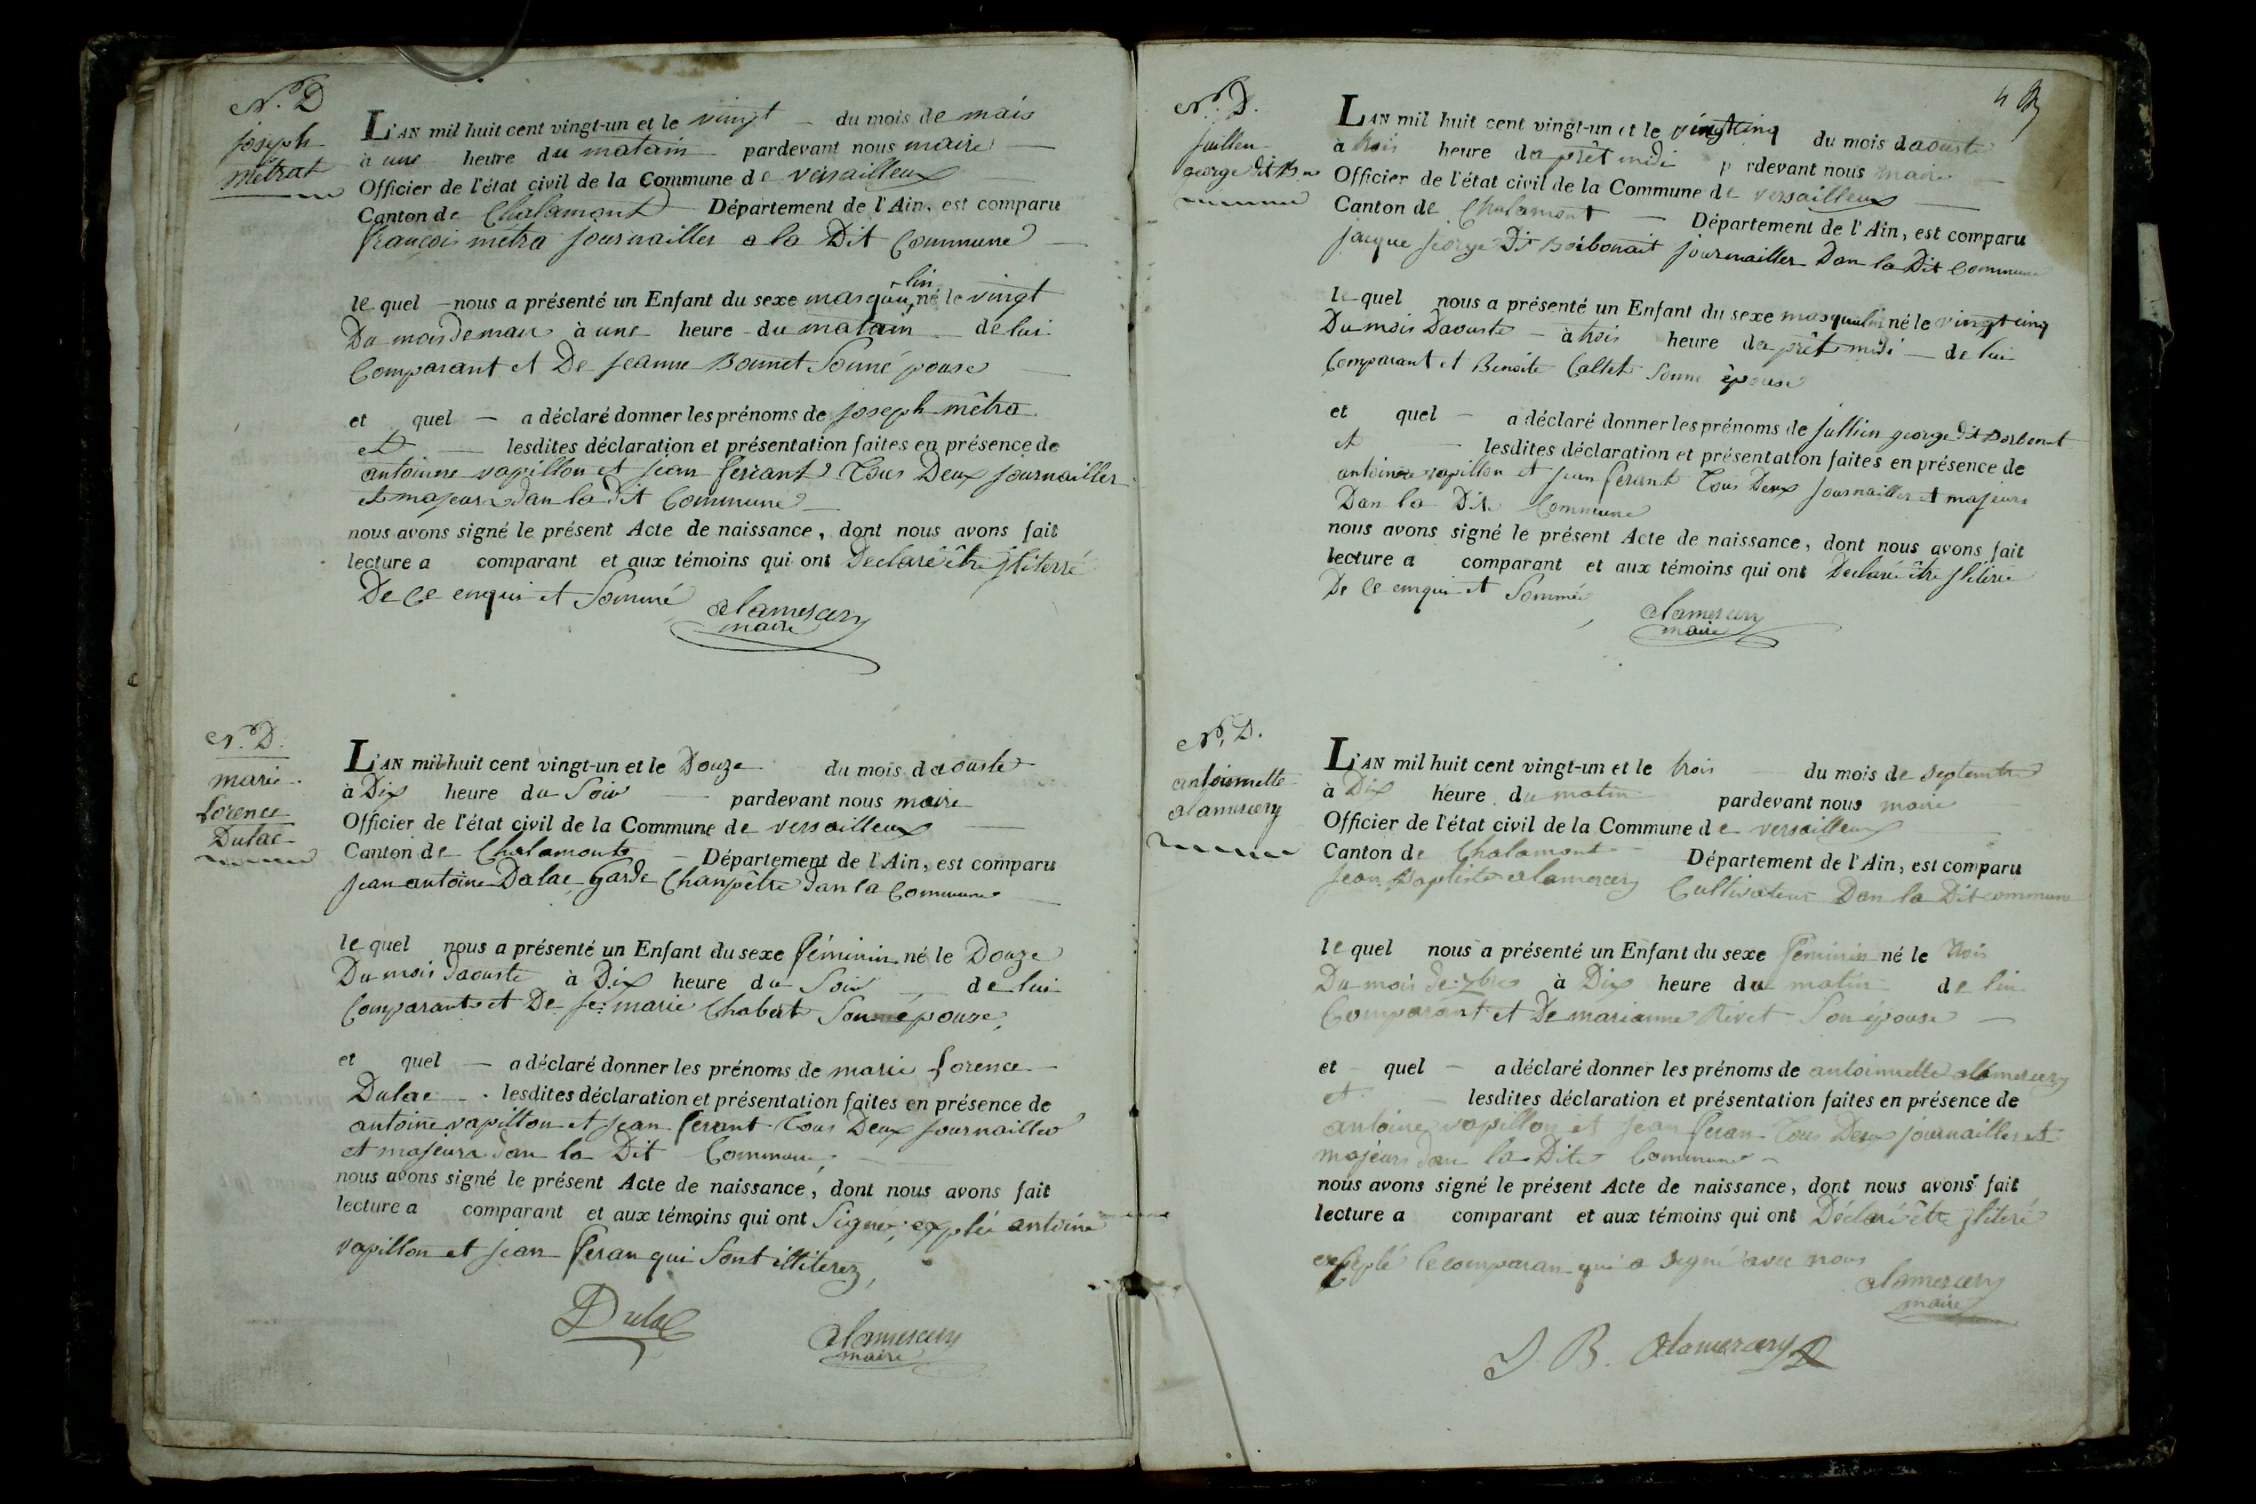 N.º D
joseph
métrat
L'AN mil huit cent vingt-un et le vingt — du mois de mais
à une heure du matain pardevant nous maire —
Officier de l'état civil de la Commune de versailleux
Canton de Chalamont Département de l'Ain, est comparu
françois métra journailler a la Dit Commune —
le quel — nous a présenté un Enfant du sexe masqulin né le vingt
Du mois de mai à une heure du matain — de lui
Comparant et De jeanne Bonnet Sonné pouse —
et quel — a déclaré donner les prénoms de joseph mêtra
et — lesdites déclaration et présentation faites en présence de
antoinne vapillon et jean ferrant Tous Deux journailler
et majeurs dan la dit Commune —
nous avons signé le présent Acte de naissance, dont nous avons fait
lecture a comparant et aux témoins qui ont Declaré être jliterré
De Ce enqui et Sommé
alamercery
maire
N.º D.
marie
Lorence
Dulac
L'AN mil huit cent vingt-un et le Douze du mois daouste
à Dix heure du Soir — pardevant nous maire
Officier de l'état civil de la Commune de versailleux —
Canton de Chalamont — Département de l'Ain, est comparu
jean antoine Dulac garde Chanpêtre dan la Commune —
le quel nous a présenté un Enfant du sexe féminin né le Douze
Du mois daouste à Dix heure du Soir — de lui
Comparant et De je: marie Chabert Sonné pouse,
et quel — a déclaré donner les prénoms de marie Lorence —
Dulac — lesdites déclaration et présentation faites en présence de
antoine vapillon et jean ferant Tous Deux journailler
et majeurs dan la Dit Commune,
nous avons signé le présent Acte de naissance, dont nous avons fait
lecture a comparant et aux témoins qui ont Signé, expté antoine
vapillon et jean feran qui Sont illiterez,
Dulac
alamercery
maire
N.º D.
juillien
george dit Bn
L'AN mil huit cent vingt-un et le vingtcinq du mois daouste
à trois heure daprêt midi p rdevant nous maire —
Officier de l'état civil de la Commune de versailleux —
Canton de Chalamont — Département de l'Ain, est comparu
jacque george Dit Borbonait journailler Dan la Dit Commune
le quel nous a présenté un Enfant du sexe masqulin né le vingtcinq
Du mois Daouste — à trois heure daprêt midi — de lui
Comparant et Benoite Caltet Sonne épouse
et quel — a déclaré donner les prénoms de jullien george dit Borbonet
et — lesdites déclaration et présentation faites en présence de
antoinne vapillon et jean ferant Tous Deux journailler et majeurs
Dan la Dite Commune
nous avons signé le présent Acte de naissance, dont nous avons fait
lecture a comparant et aux témoins qui ont Declaré être jliterré
De Ce enqui et Sommé
alamercery
maire
N.º D.
antoinnette
alamercery
L'AN mil huit cent vingt-un et le trois — du mois de septembre
à Dix heure du matin pardevant nous maire —
Officier de l'état civil de la Commune de versailleux
Canton de Chalamont — Département de l'Ain, est comparu
jean Baptiste alamercery Cultivateur Dan la Dit commune
le quel nous a présenté un Enfant du sexe féminin né le trois
Du mois de 7bre à Dix heure du matin de lui
Comparant et De marianne Rivet Son épouse —
et quel — a déclaré donner les prénoms de antoinnette alamercery
et — lesdites déclaration et présentation faites en présence de
antoine vapillon et jean feran Tous Deux journailler et
majeurs dan la Dite Commune —
nous avons signé le présent Acte de naissance, dont nous avons fait
lecture a comparant et aux témoins qui ont Déclaré être jliteré
exepté le comparan qui a signé avec nous
alamercery
maire
J. B. alamercery